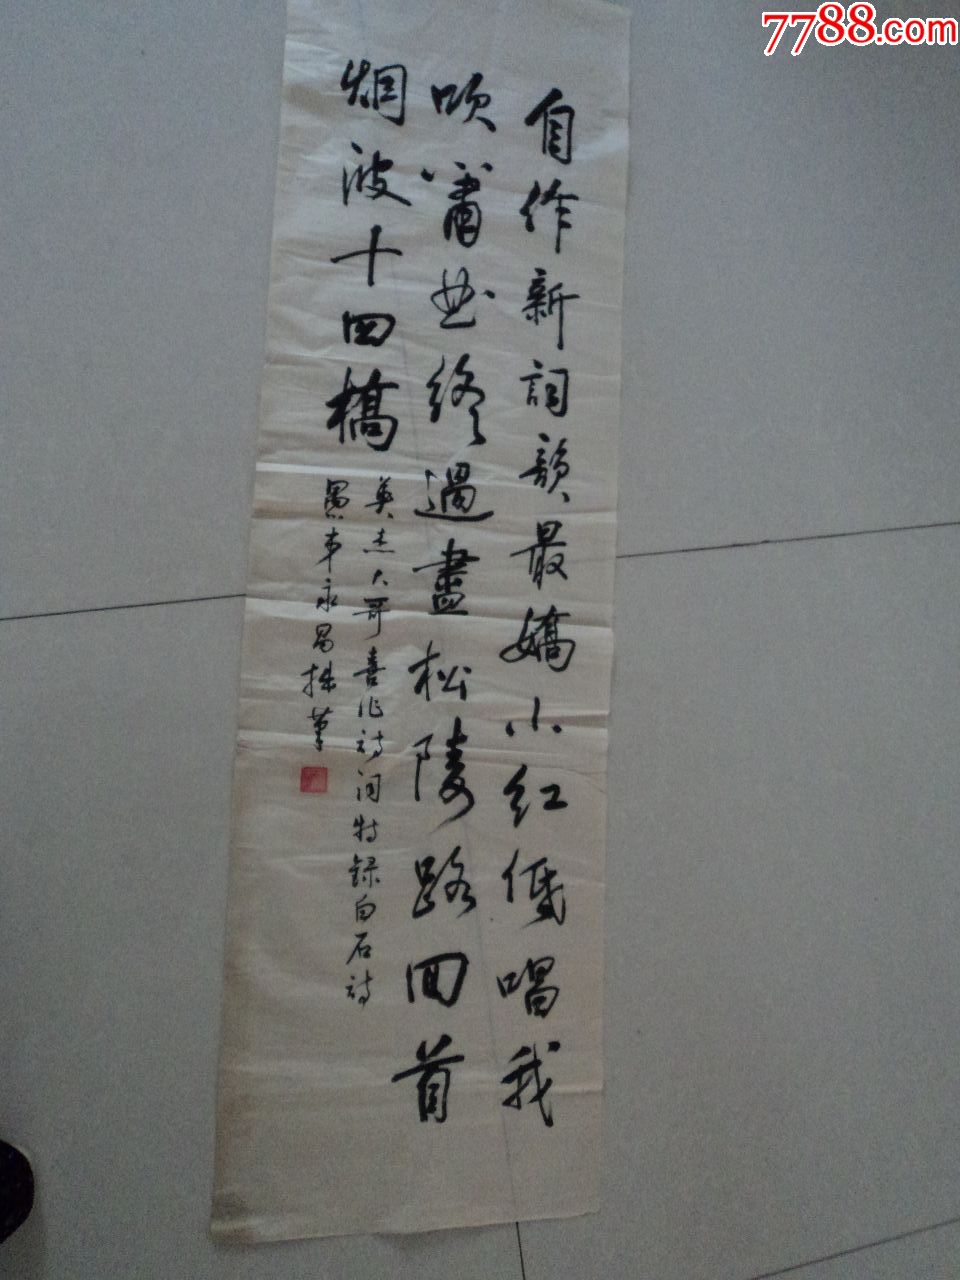 7788.com
自作新詞韻最嬌小紅低唱我
吹簫曲終過盡松陵路回首
烟波十四橋
英杰大哥喜作詩词特録白石詩
愚弟永昌拙筆